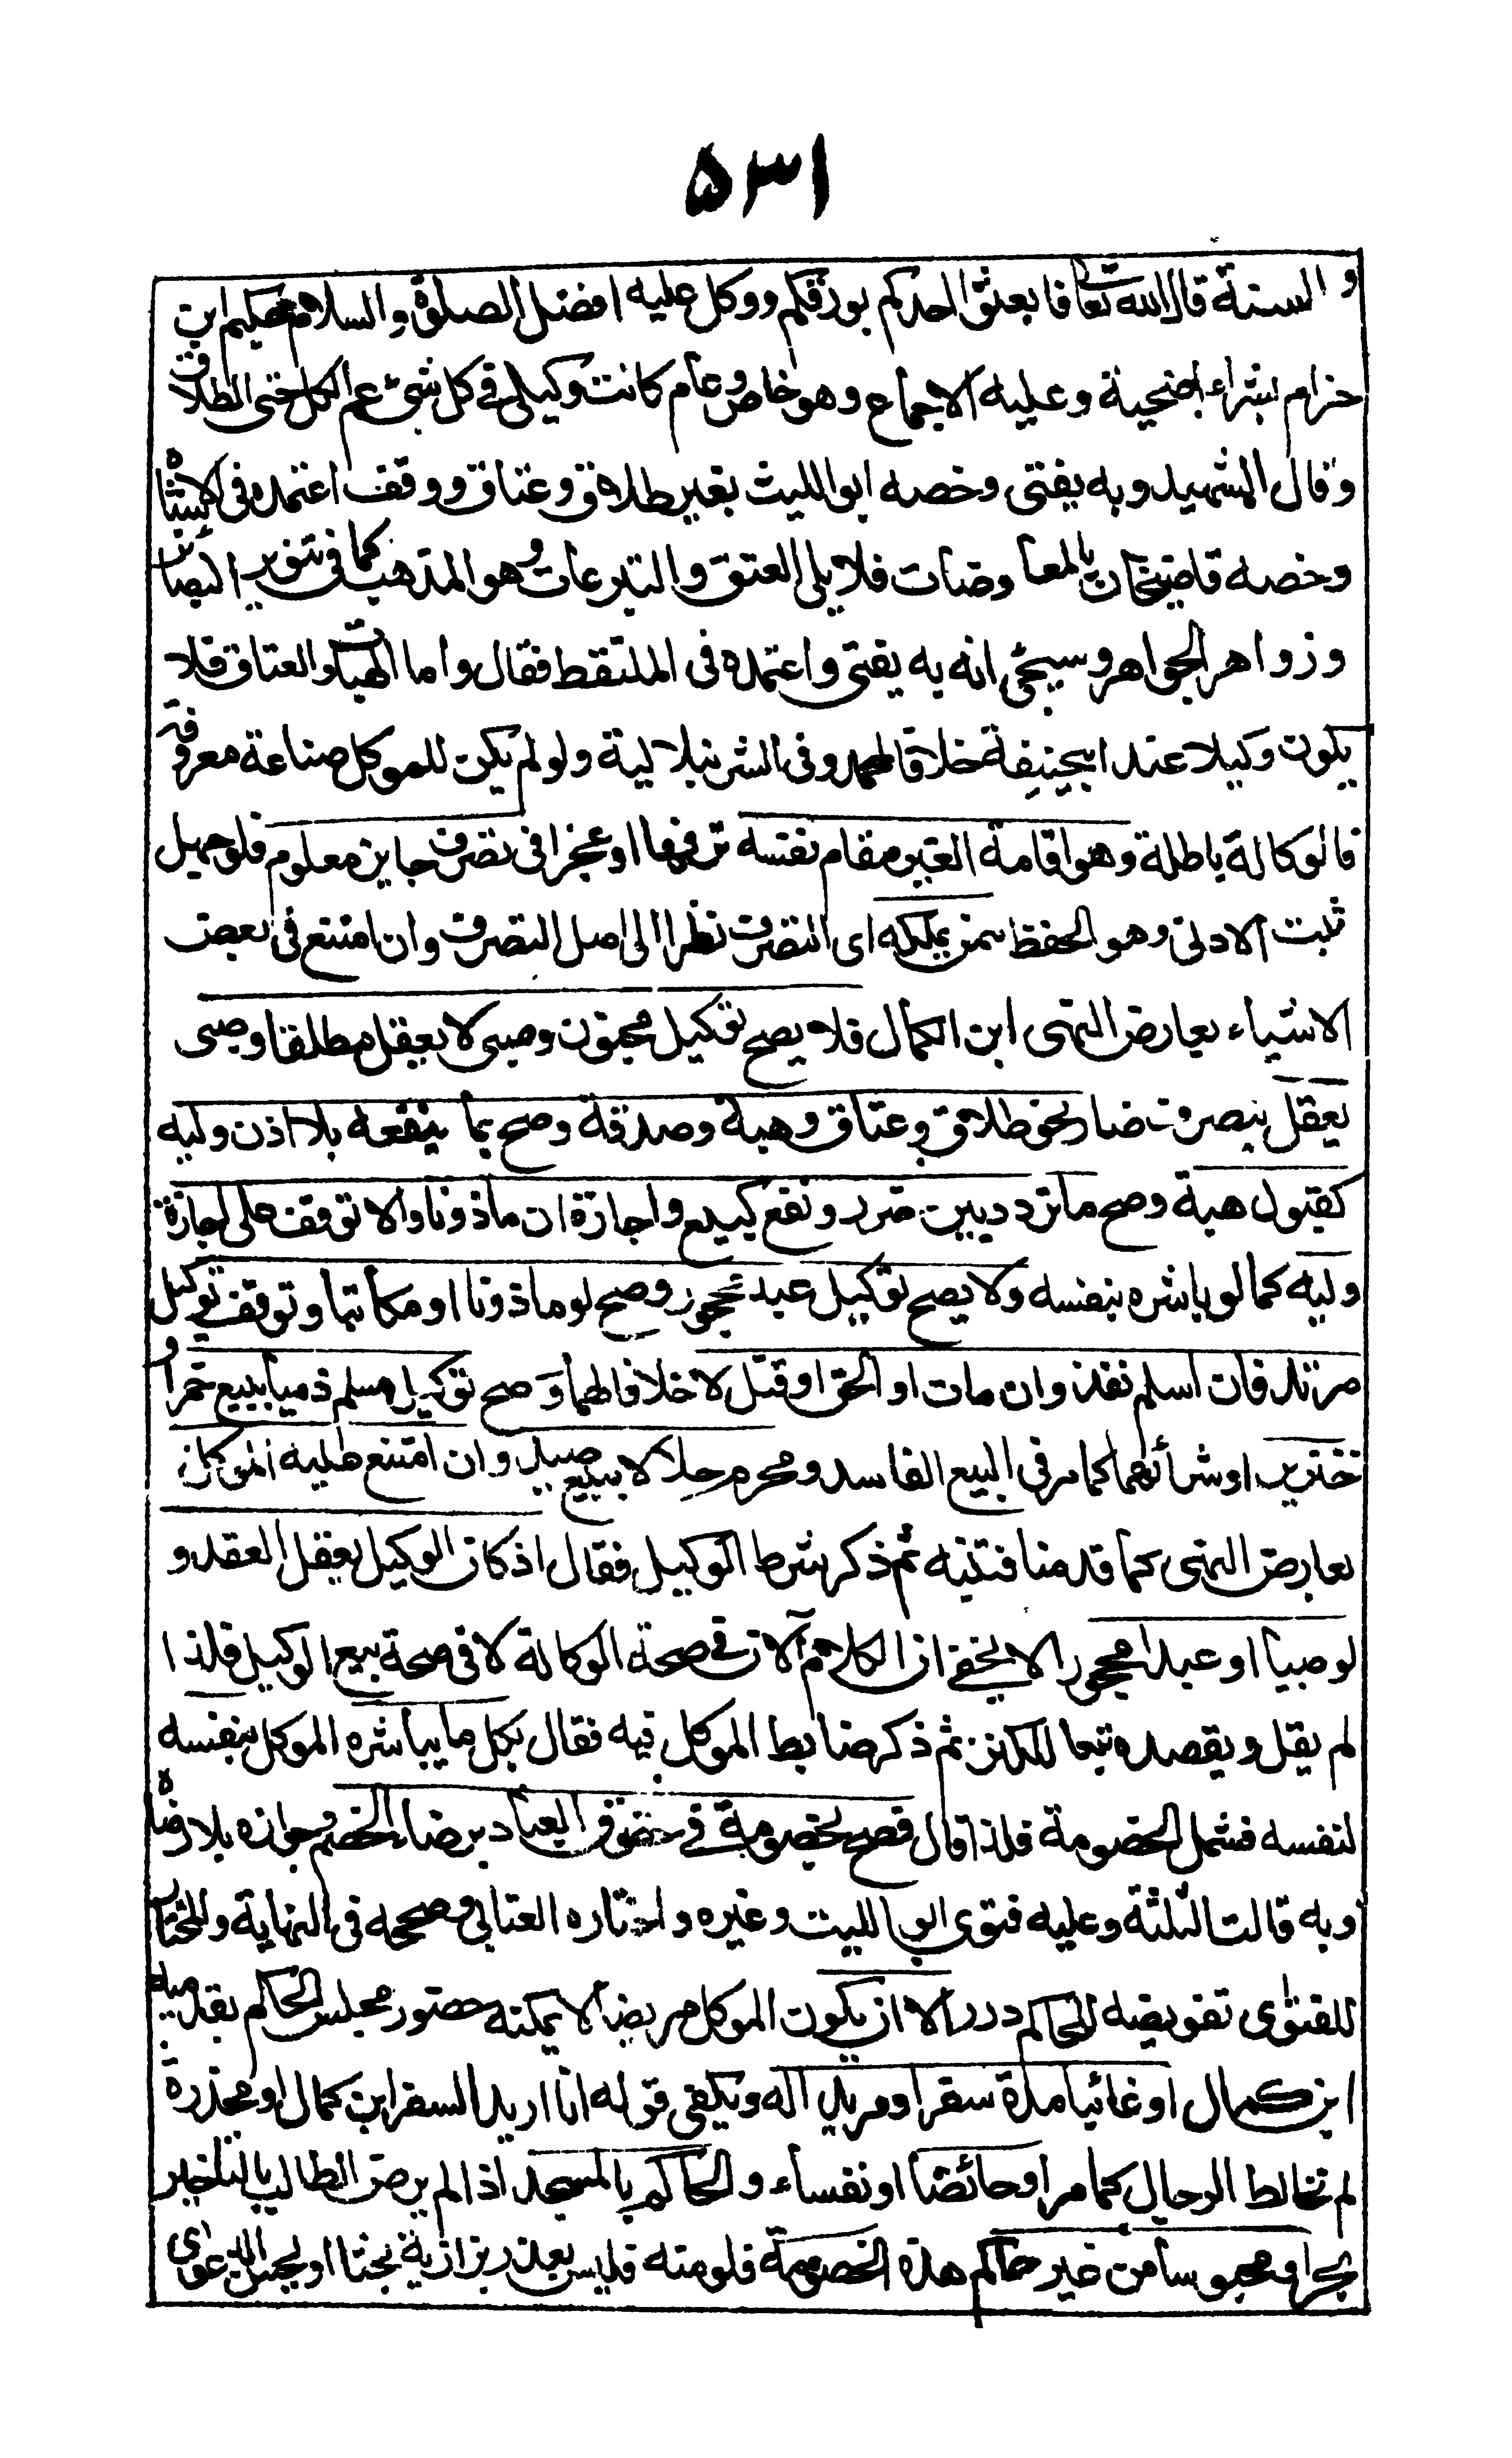 ٥٣١
والسنة قال الله تعالى فابعثوا احدكم بورقكم ووكل عليه افضل الصلوة والسلام حكيم ابن
حزام بشراء اضحية وعليه الاجماع وهو خاص وعام كانت وكيلى فى كل شئ عم الكل حتى الطلاق
وقال الشهيد وبه يفتى وخصه ابو الليث بغير طلاق وعتاق ووقف اعتمده فى الاشباه
وخصه قاضيخان بالمعاوضات فلا يلى العتق والتبرعات وهو المذهب كما فى تنوير البصائر
وزواهر الجواهر وسيجئ انه به يفتى واعتمده فى الملتقط فقال واما الهبات والعتاق فلا
يكون وكيلا عند ابيحنيفة خلافا لمحمد وفى الشرنبلالية ولو لم يكن للموكل صناعة معروفة
فالوكالة باطلة وهو اقامة الغير مقام نفسه ترفها او عجزا فى تصرف جايز معلوم فلو جهل
ثبت الادنى وهو الحفظ ممن يملكه اى التصرف نظرا الى اصل التصرف وان امتنع فى بعض
الاشياء بعارض النهى ابن الكمال فلا يصح توكيل مجنون وصبى لا يعقل مطلقا وصبى
يعقل بتصرف ضار بنحو طلاق وعتاق وهبة وصدقة وصح بما ينفعه بلا اذن وليه
كقبول هبة وصح ما تردد بين ضرر ونفع كبيع واجازة ان ماذونا والا توقف على اجازة
وليه كما لو باشره بنفسه ولا يصح توكيل عبد محجور وصح لو ماذونا او مكاتبا وتوقف توكيل
مرتد فان اسلم نفذ وان مات او لحق او قتل لا خلافا لهما وصح توكيل مسلم ذميا ببيع خمر او
خنزير او شرائهما كما مر فى البيع الفاسد ومحرم حلالا ببيع صيد وان امتنع عليه الموكل
بعارض النهى كما قدمنا فتنبه ثم ذكر شرط التوكيل فقال اذ كان الوكيل يعقل العقد و
لو صبيا او عبدا محجورا لا يخفى ان الكلام الآن فى صحة الوكالة لا فى صحة بيع الوكيل فلذا
لم يقل ويقصده تبعا للكنز ثم ذكر ضابط الموكل فيه فقال بكل ما يباشره الموكل بنفسه
لنفسه فشمل الخصومة فلذا قال فصح بخصومة فى حقوق العباد برضاء الخصم وجوازه بلا رضاه
وبه قالت الثلثة وعليه فتوى ابو الليث وغيره واختاره العتابى وصححه فى النهاية والمختار
للفتوى تفويضه للحاكم درر الا ان يكون الموكل مريضا لا يمكنه حضور مجلس الحاكم بقدميه
ابن كمال او غائبا مدة سفر او مريدا له ويكفى قوله انا اريد السفر ابن كمال او مخدرة
لم تخالط الرجال كما مر او حائضا او نفساء والحاكم بالمسجد اذا لم يرض الطالب بالتاخير
بحر او محبوسا من غير حاكم هذه الخصومة فلو منه فليس بعذر بزازية بحثا او لا يحسن الدعوى